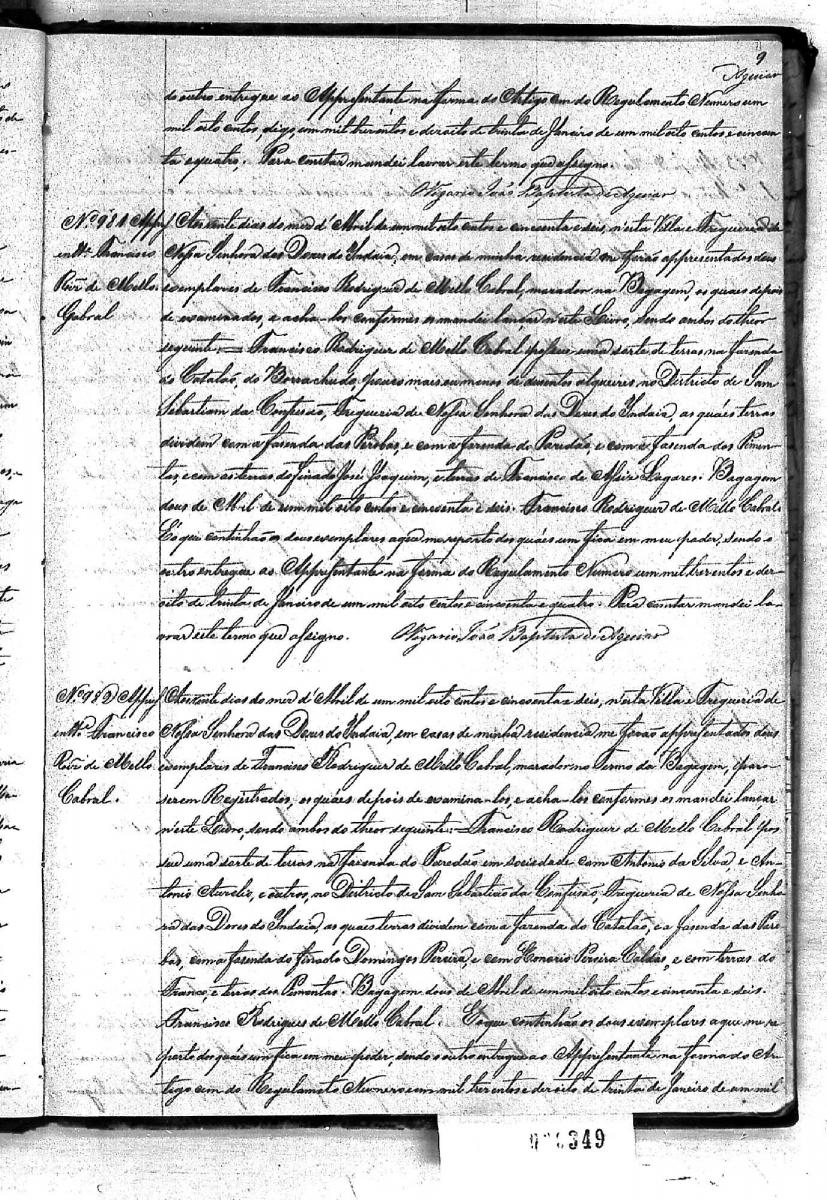 9
Aguiar
do outro entregue ao Appresentante na forma do Artigo cem do Regulamento Numero um
mil oito centos, digo, um mil trezentos e dezoito de trinta de Janeiro de um mil oito centos e cincoen
ta e quatro. Para constar mandei lavrar este termo que assigno.
Vigario João Baptista de Aguiar
Nº 981 Appres
en.te Francisco
Roiz de Mello
Cabral
Aos vinte dias do mez d'Abril de um mil oito centos e cincoenta e seis, n'esta Villa e Freguezia de
Nossa Senhora das Dores do Indaiá, em casas de minha residencia me forão appresentados dous
exemplares de Francisco Rodrigues de Mello Cabral, morador na Bagagem, os quaes depois
de examinados, e acha-los conformes os mandei lançar n'este Livro, sendo ambos do theor
seguinte = Francisco Rodrigues de Mello Cabral possue uma sorte de terras na fazenda
do Catalão, do Borrachudo, pouco mais ou menos, de duzentos alqueires no Districto de Sam
Sebastiam da Confusão, Freguezia de Nossa Senhora das Dores do Indaia, as quáes terras
dividem com a fazenda das Perobas, e com a fazenda do Paredão, e com a fazenda dos Pimen-
tas, e com as terras do finado José Joaquim, e terras de Francisco de Lagares. Bagagem
dous de Abril de um mil oito centos e cincoenta e seis. Francisco Rodrigues de Mello Cabral.
E o que continhão os dous exemplares a que me reporto dos quáes um fica em meu poder, sendo o
outro entregue ao Appresentante na forma do Regulamento Numero um mil trezentos e dez-
oito de trinta de Janeiro de um mil oito centos e cincoenta e quatro. Para constar mandei la-
vrar este termo que assigno. Vigario João Baptista de Aguiar
Nº 982 Appres
en.te Francisco
Roiz de Mello
Cabral.
Aos vinte dias do mez d'Abril de um mil oito centos e cincoenta e seis, n'esta Villa e Freguezia de
Nossa Senhora das Dores do Indaia, em casas de minha residencia me forão appresentados dous
exemplares de Francisco Rodriguez de Mello Cabral, morador no Termo da Bagagem, para
serem Registrados, os quaes depois de examina-los, e acha-los conformes os mandei lançar
n'este Livro, sendo ambos do theor seguinte = Francisco Rodriguez de Mello Cabral pos
sue uma sorte de terras na fazenda do Paredão em sociedade com Antonio da Silva e An-
tonio Aurelio, e outros, no Districto de Sam Sebastião da Confusão, Freguezia de Nossa Senho
ra das Dores do Indaia, as quaes terras dividem com a fazenda do Catalão, e a fazenda das Pero
bas, com a fazenda do finado Domingos Pereira, e com Honorio Pereira Caldas, e com terras do
Franco, e terras dos Pimentas. Bagagem dous de Abril de um mil oito centos e cincoenta e seis.
Francisco Rodrigues de Mello Cabral. E o que continhão os dous exemplares a que me re
porto dos quáes um fica em meu poder, sendo o outro entregue ao Appresentante na forma do Ar-
tigo cem do Regulamento Numero um mil trezentos e dezoito de trinta de Janeiro de um mil
349